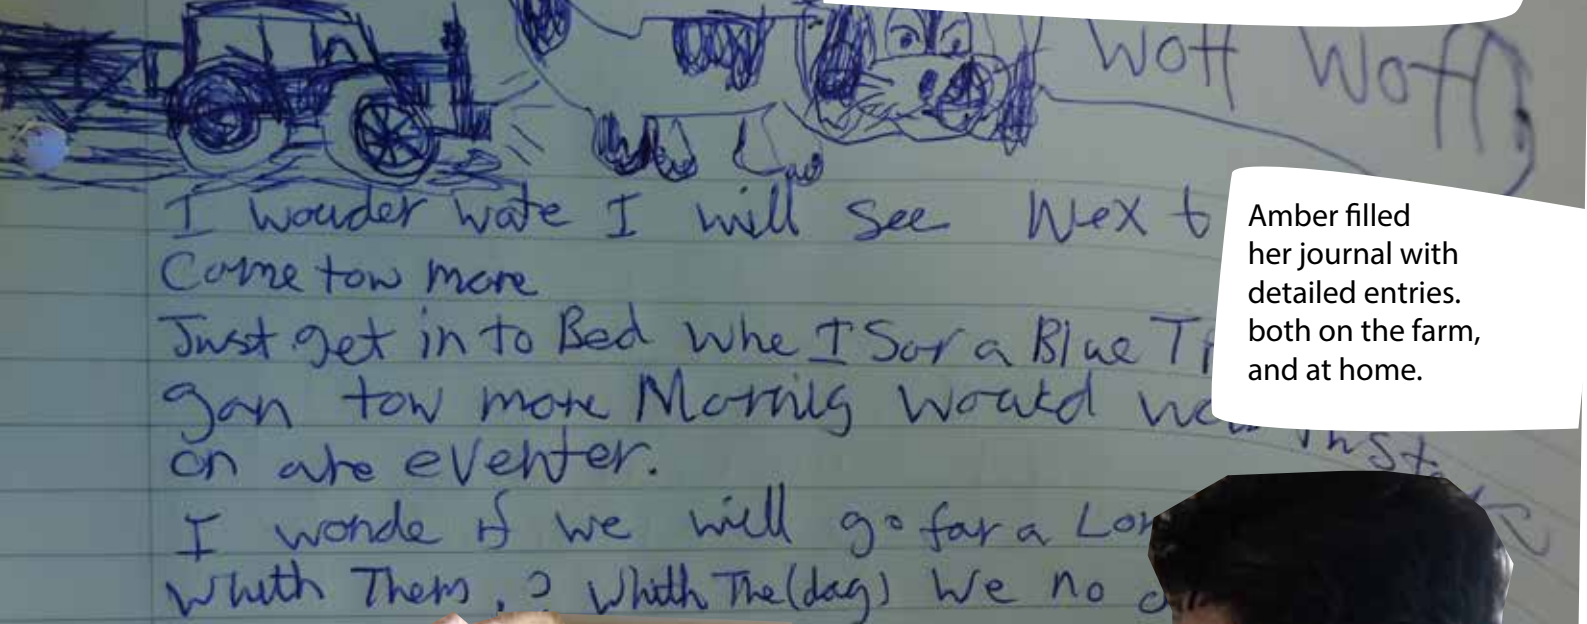 Woff Woff
I wouder wate I will See Nex t
Come tow more
Just get in to Bed whe I Sor a Blue
gan tow more Mornig
on are eventer.
I wonde if we will go for a
Whith Them, ? Whith The (dog) We no
Amber filled
her journal with
detailed entries.
both on the farm,
and at home.